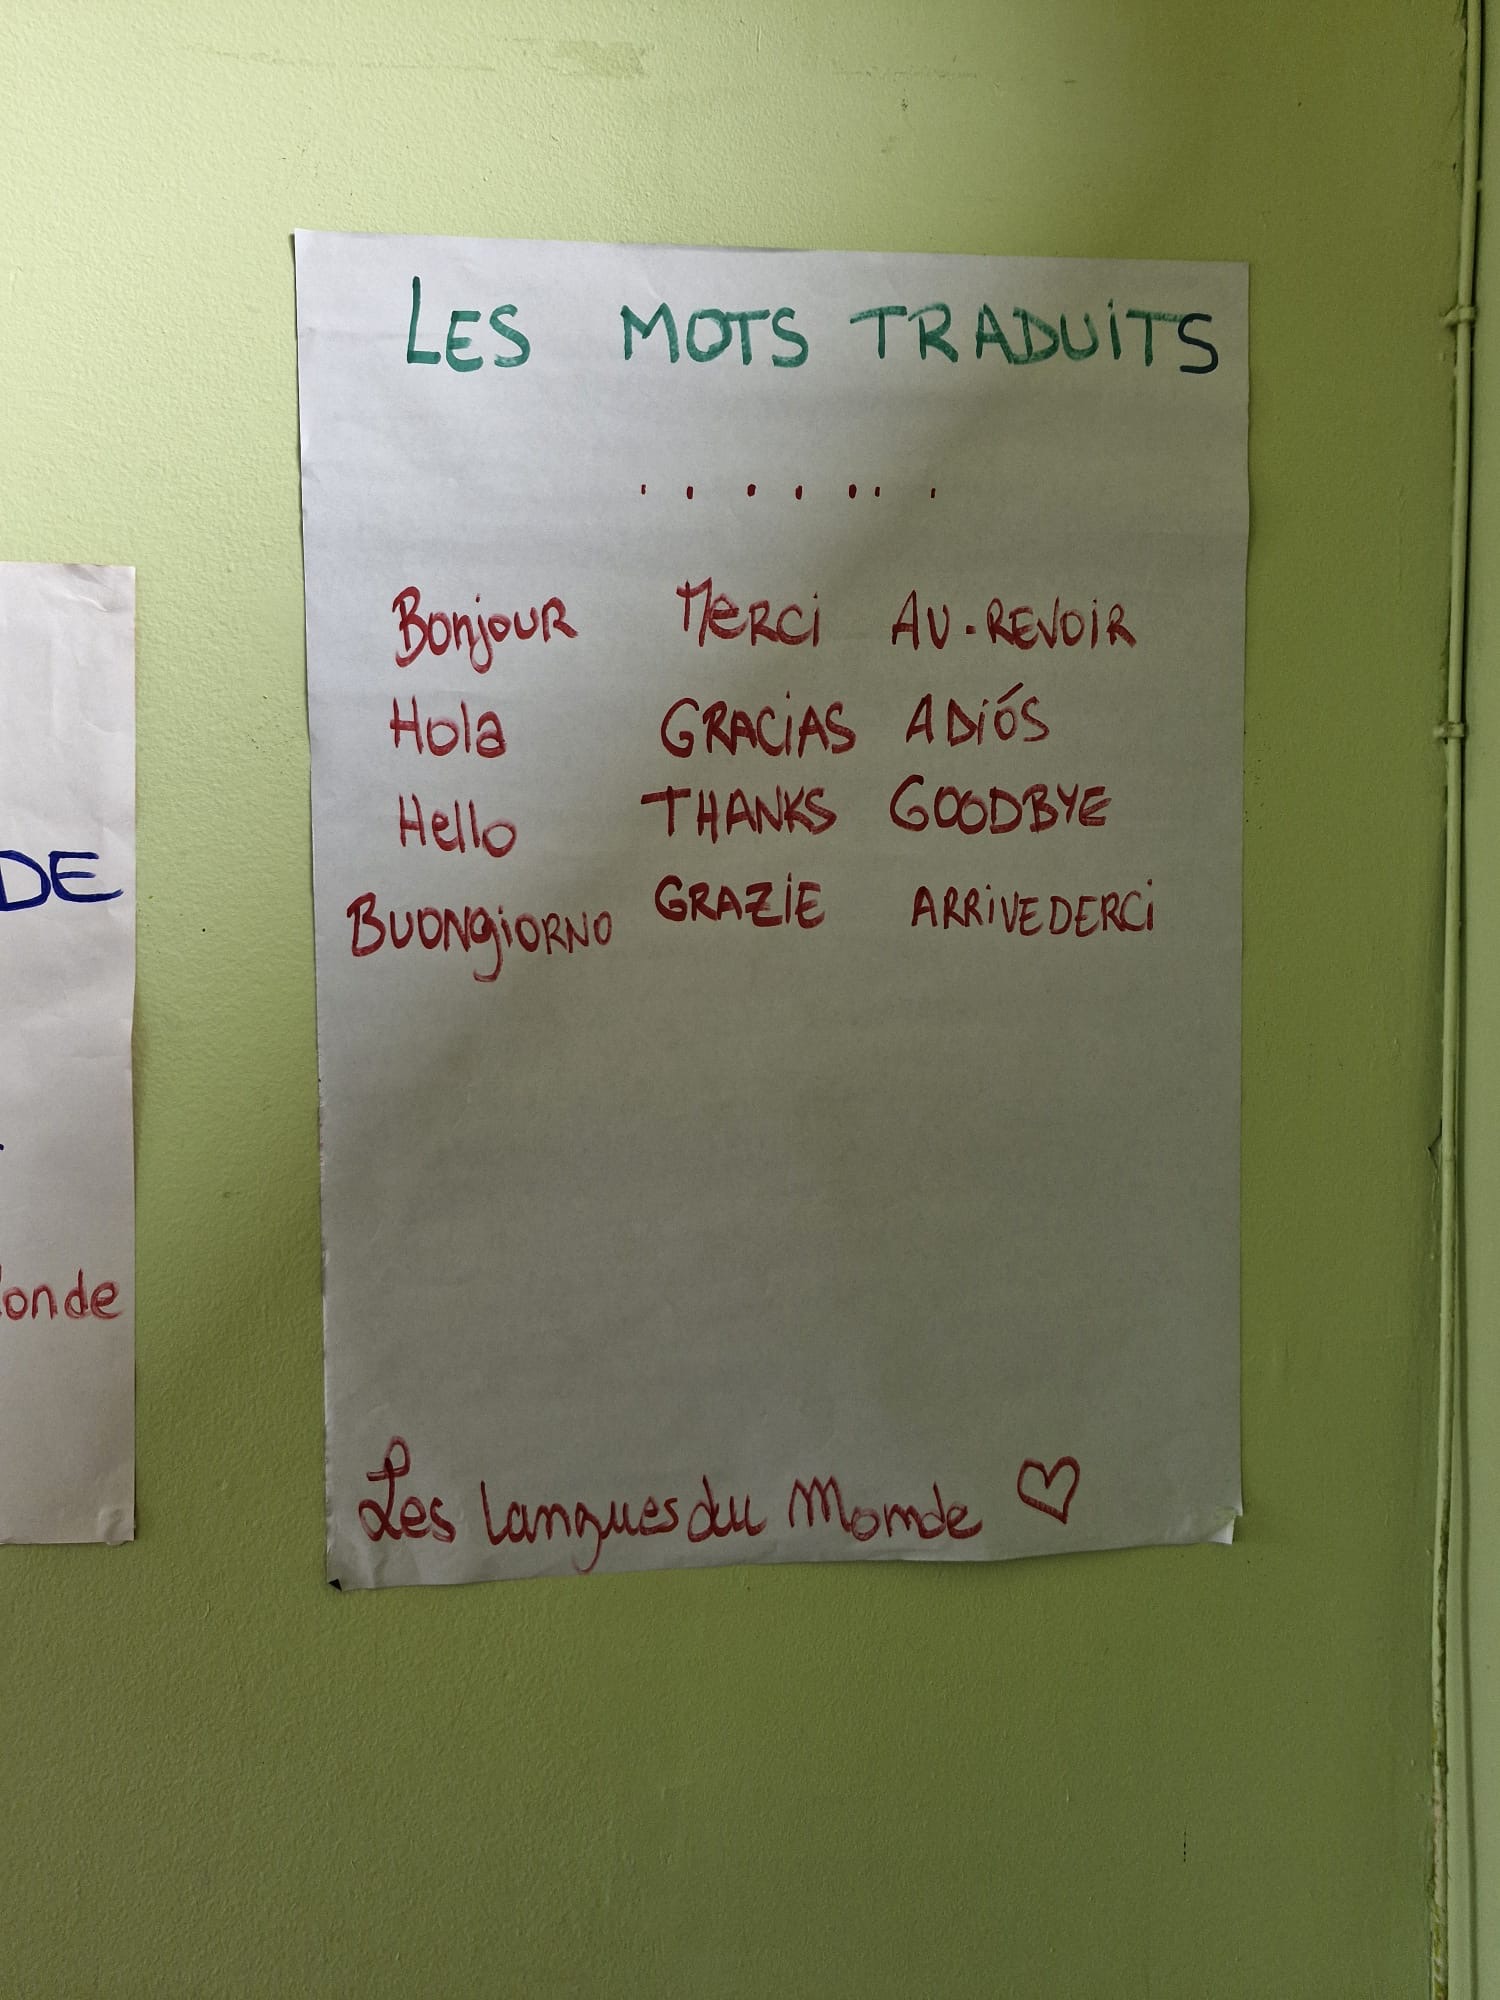 LES MOTS TRADUITS
.......
Bonjour Merci AU-REVOIR
Hola GRACIAS ADIÓS
Hello THANKS GOODBYE
BUONGIORNO GRAZIE ARRIVEDERCI
Les langues du Monde ♡
DE
onde